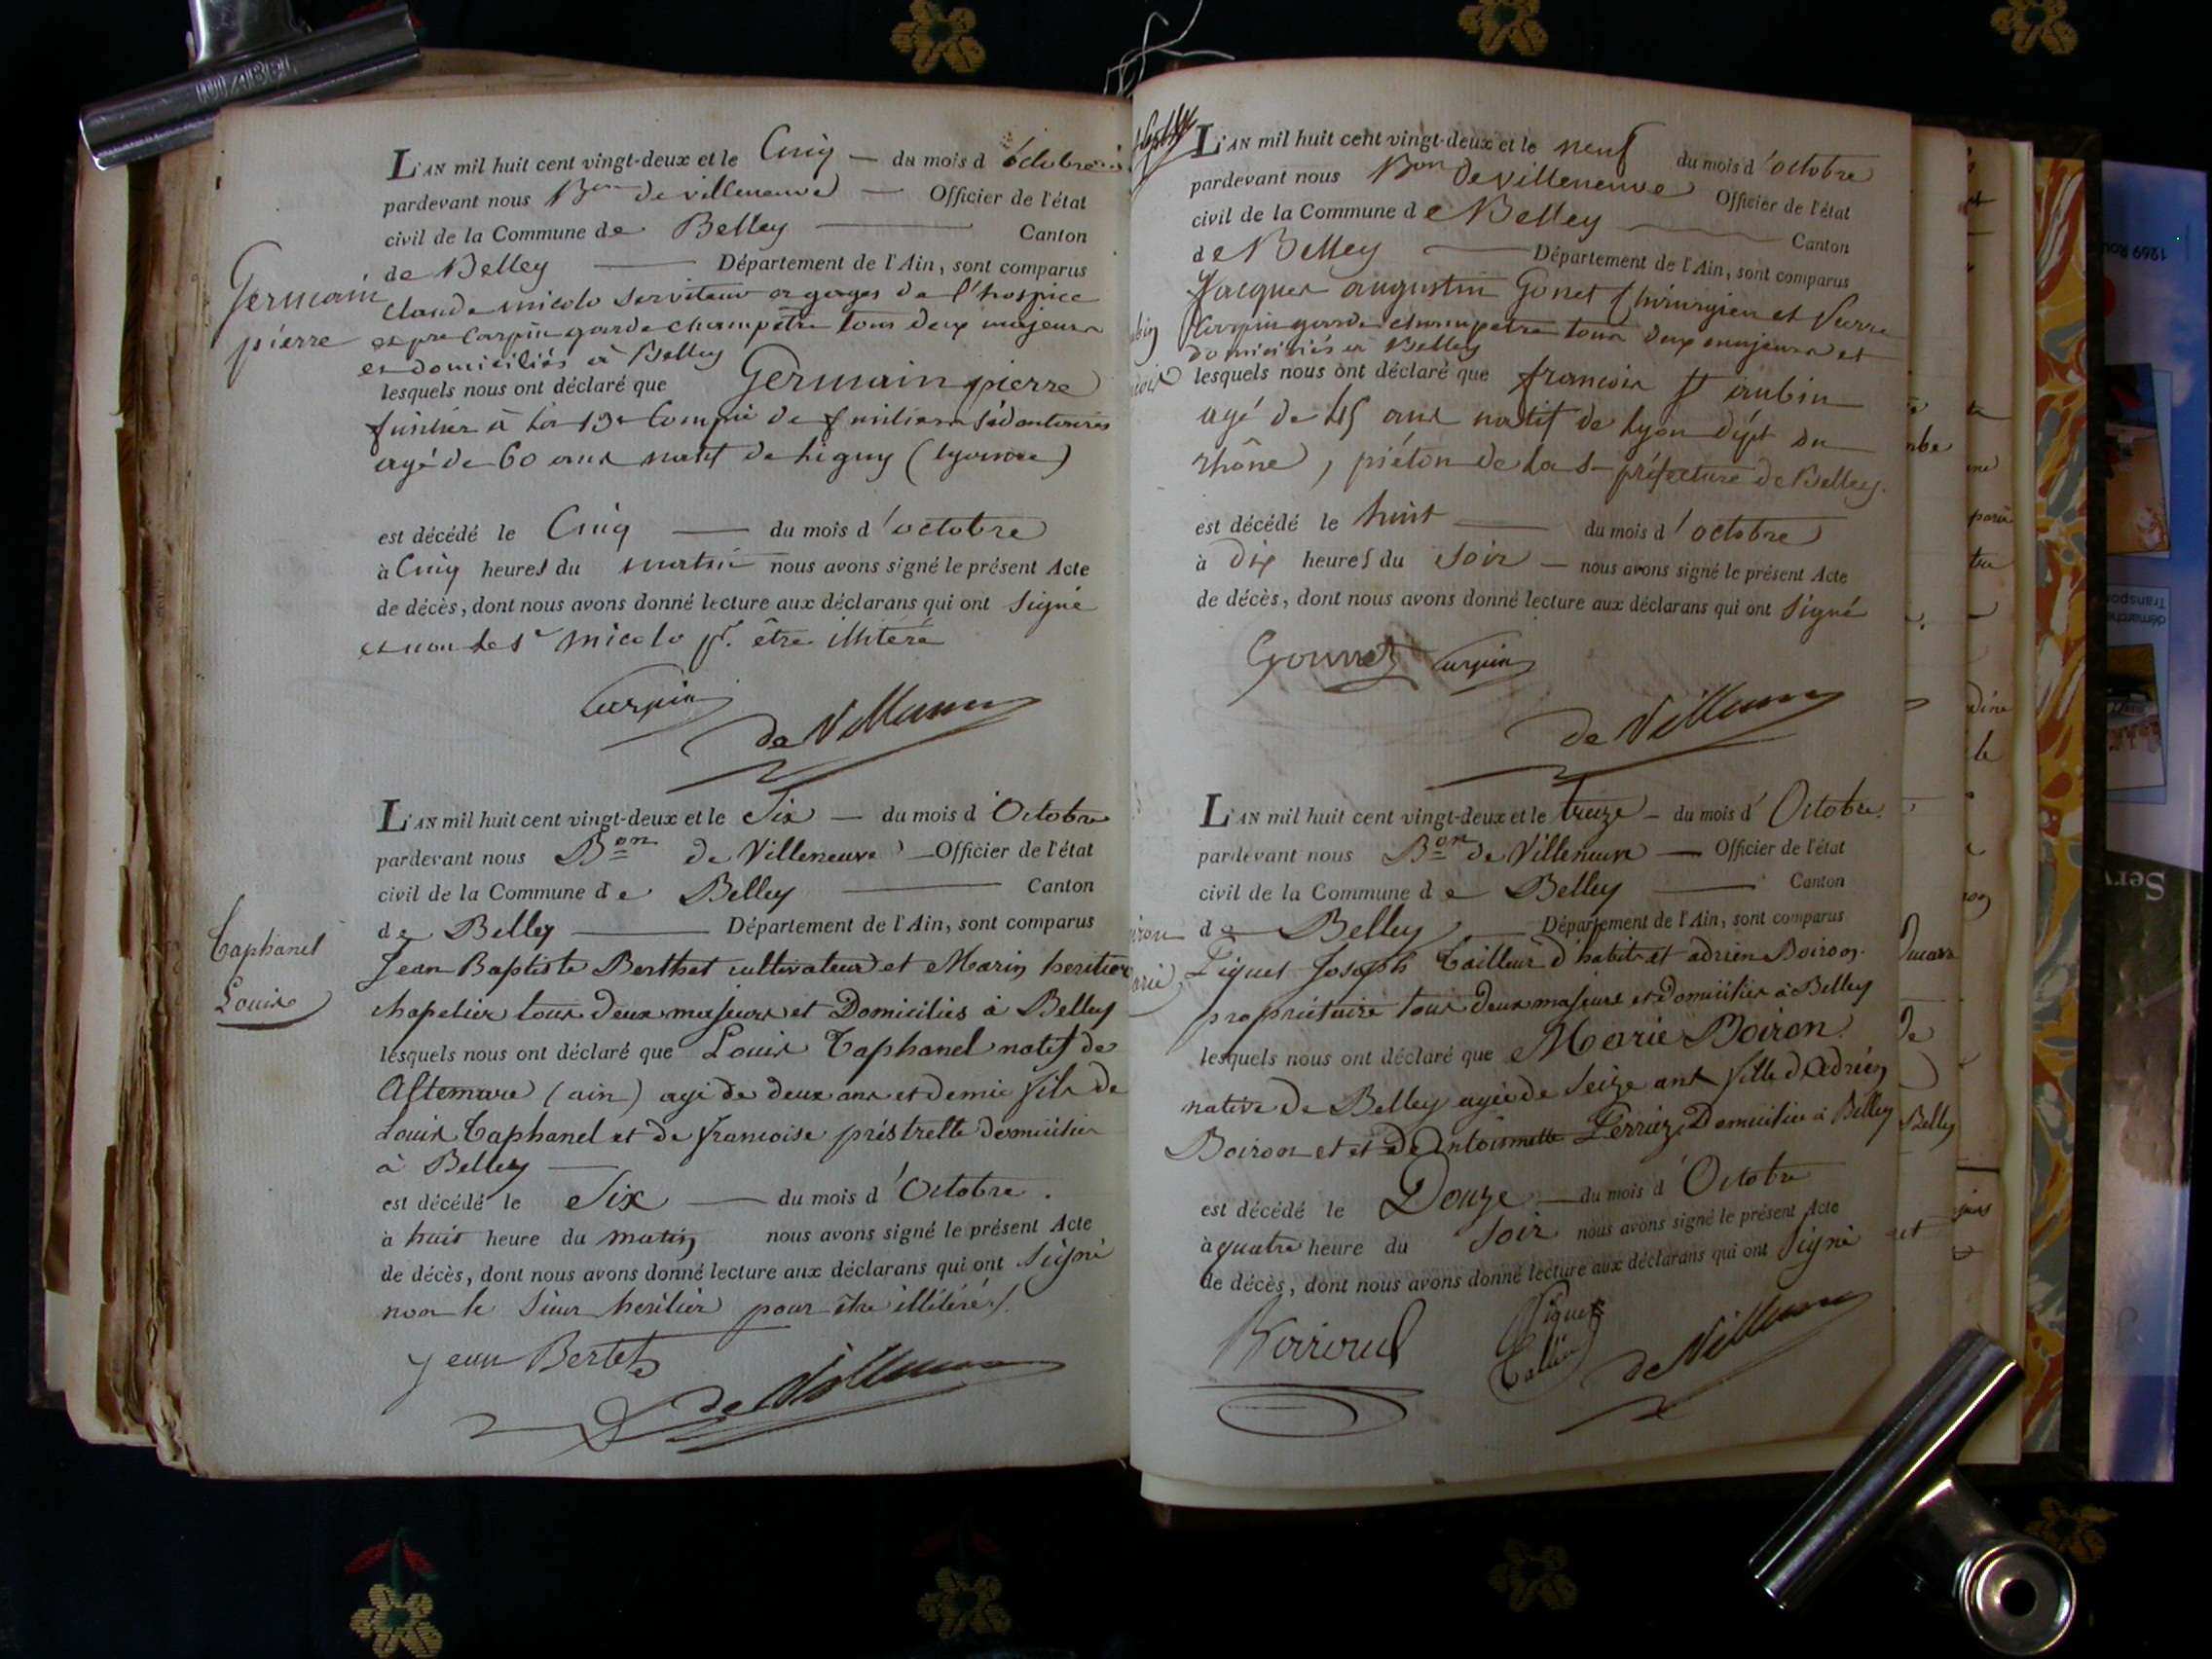 L'AN mil huit cent vingt-deux et le Cinq — du mois d'octobre
pardevant nous Bon de villeneuve — Officier de l'état
civil de la Commune de Belley — Canton
de Belley — Département de l'Ain, sont comparus
Germain
pierre
Claude micolo serviteur a gages de l'hospice
et pre Carpin garde champêtre tous deux majeurs
et domiciliés à Belley
lesquels nous ont déclaré que Germain pierre
fusilier à la 13e Compie de fusiliers sédentaires
agé de 60 ans natif de Liguy (lyonnais)
est décédé le Cinq — du mois d'octobre
à Cinq heures du matin nous avons signé le présent Acte
de décès, dont nous avons donné lecture aux déclarans qui ont signé
et non le sr micolo pr. être illitéré
Carpin
de Villeneuve
L'AN mil huit cent vingt-deux et le Six — du mois d'Octobre
pardevant nous Bon de Villeneuve — Officier de l'état
civil de la Commune de Belley — Canton
de Belley — Département de l'Ain, sont comparus
Taphanel
Louis
Jean Baptiste Berthet cultivateur et Marin heritier
chapelier tous deux majeurs et Domiciliés à Belley
lesquels nous ont déclaré que Louis Taphanel natif de
Altemare (ain) agé de deux ans et demie fils de
Louis Taphanel et de francoise préstrelle domiciliés
à Belley —
est décédé le Six — du mois d'Octobre.
à huit heure du matin nous avons signé le présent Acte
de décès, dont nous avons donné lecture aux déclarans qui ont signé
non le sieur heritier pour être illitéré
jean Bertet
de Villeneuve
L'AN mil huit cent vingt-deux et le neuf du mois d'octobre
pardevant nous Bon de villeneuve Officier de l'état
civil de la Commune de Belley — Canton
de Belley — Département de l'Ain, sont comparus
Jacques augustin Gonet Chirurgien et Pierre
Carpin garde champetre tous deux majeurs et
domiciliés à Belley
lesquels nous ont déclaré que francois St aubin
agé de 45 ans natif de Lyon dépt du
rhône, piéton de la S-préfecture de Belley.
est décédé le huit — du mois d'octobre
à Dix heures du soir — nous avons signé le présent Acte
de décès, dont nous avons donné lecture aux déclarans qui ont signé
Gonnet Carpin
de Villeneuve
L'AN mil huit cent vingt-deux et le treize — du mois d'Octobre.
pardevant nous Bon de Villeneuve — Officier de l'état
civil de la Commune de Belley — Canton
de Belley — Département de l'Ain, sont comparus
Piquet Joseph Tailleur d'habits et adrien Boiron
propriétaire tous deux majeurs et domiciliés à Belley
lesquels nous ont déclaré que Marie Boiron
native de Belley agée de seize ans fille d'Adrien
Boiron et et de Antoinette Perrier, Domiciliée à Belley
est décédé le Douze — du mois d'Octobre
à quatre heure du soir nous avons signé le présent Acte
de décès, dont nous avons donné lecture aux déclarans qui ont signé
Boiron Piquet
de Villeneuve